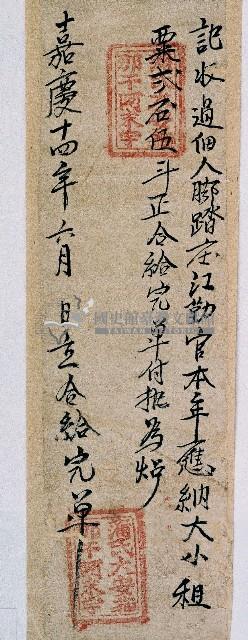 記收過佃人腳踏庄江勤官本年應納大小租
粟弍石伍斗正合給完单付执為炤
嘉慶十四年六月 日立合給完单
國史館臺灣文獻館